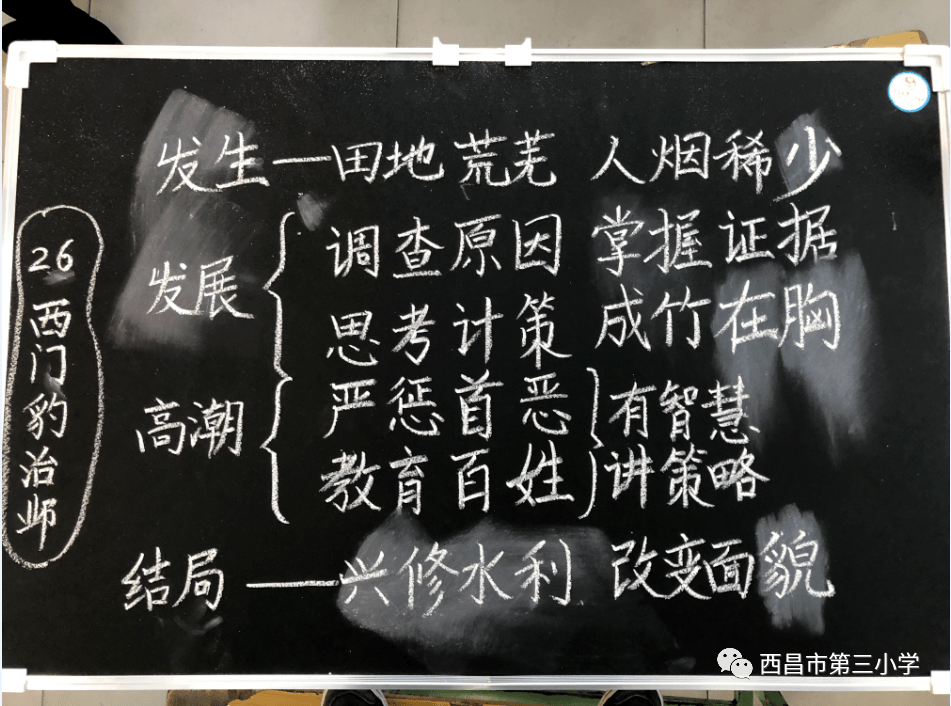 26 西门豹治邺
发生—田地荒芜 人烟稀少
发展
调查原因 掌握证据
思考计策 成竹在胸
高潮
严惩首恶
教育百姓
有智慧
讲策略
结局——兴修水利 改变面貌
西昌市第三小学